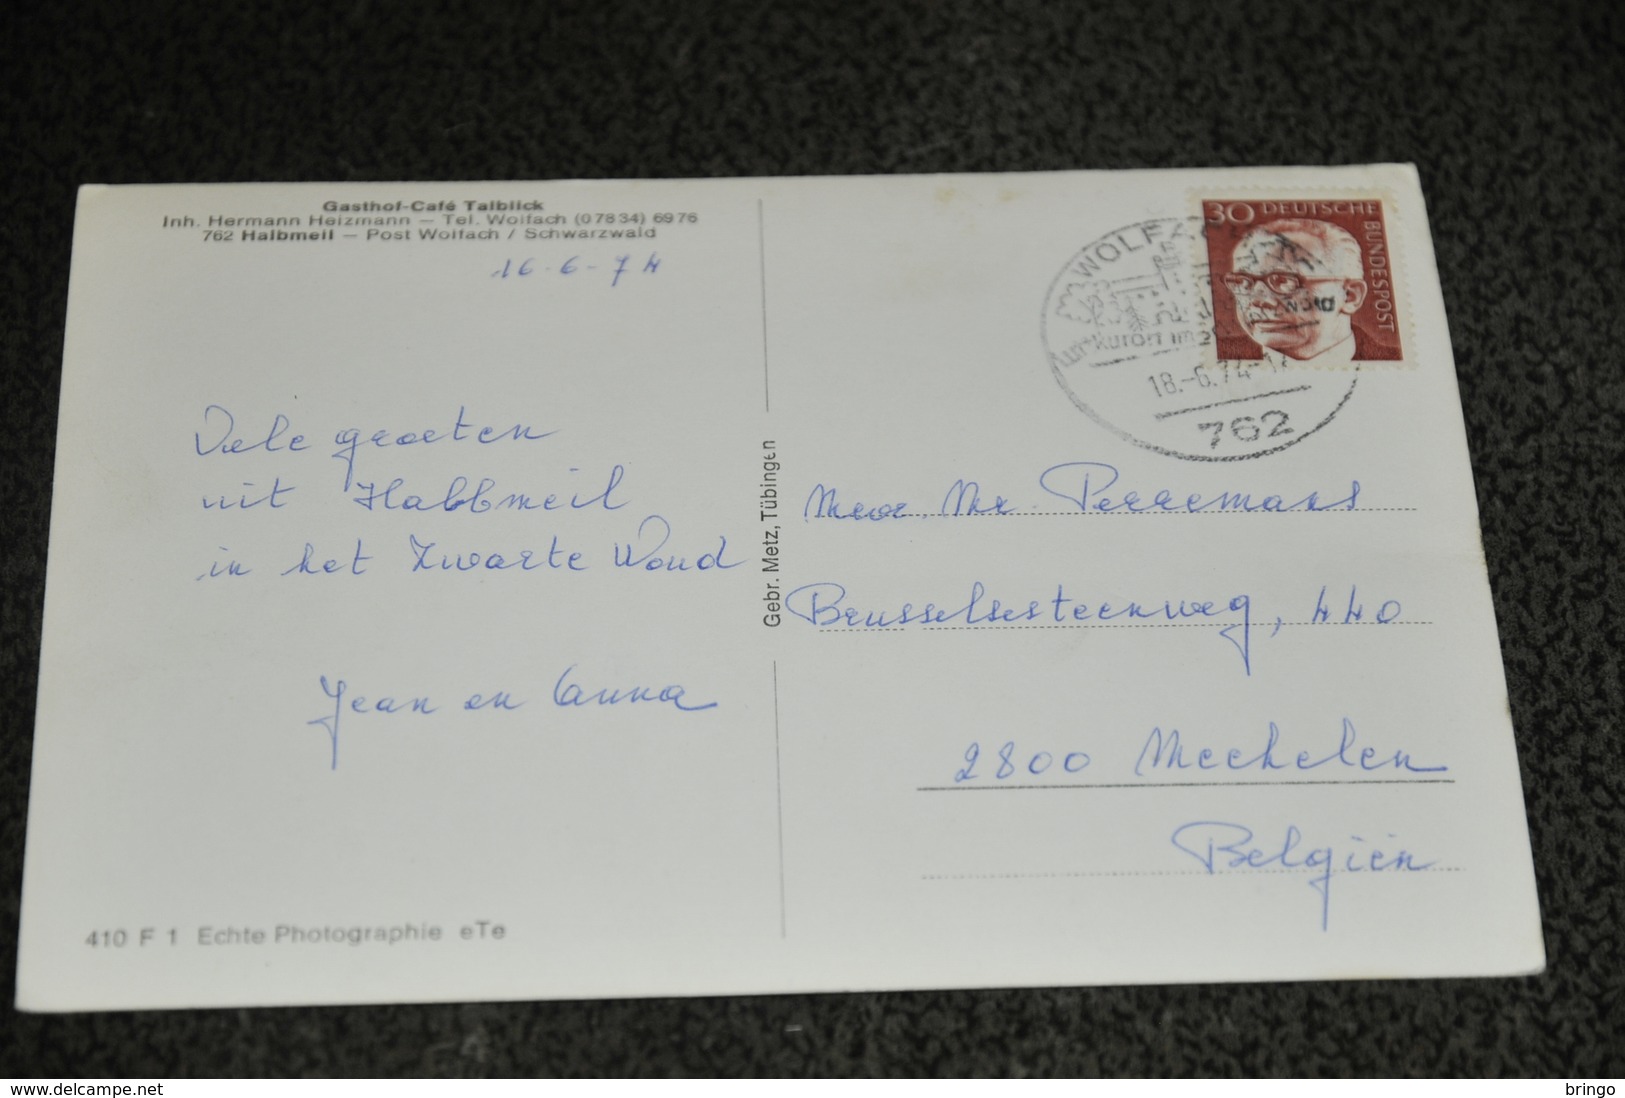 Gasthof-Café Talblick
Inh. Hermann Heizmann — Tel. Wolfach (07834) 6976
762 Halbmeil — Post Wolfach / Schwarzwald
16-6-74
Vele groeten
uit Halbmeil
in het Zwarte Woud
Jean en Anna
410 F 1 Echte Photographie eTe
Gebr. Metz, Tübingen
30 DEUTSCHE
BUNDESPOST
WOLFACH
kurort im
18.-6.74-17
762
Mevr. Mr. Perremans
Brusselsesteenweg, 440
2800 Mechelen
Belgiën
www.delcampe.net
bringo